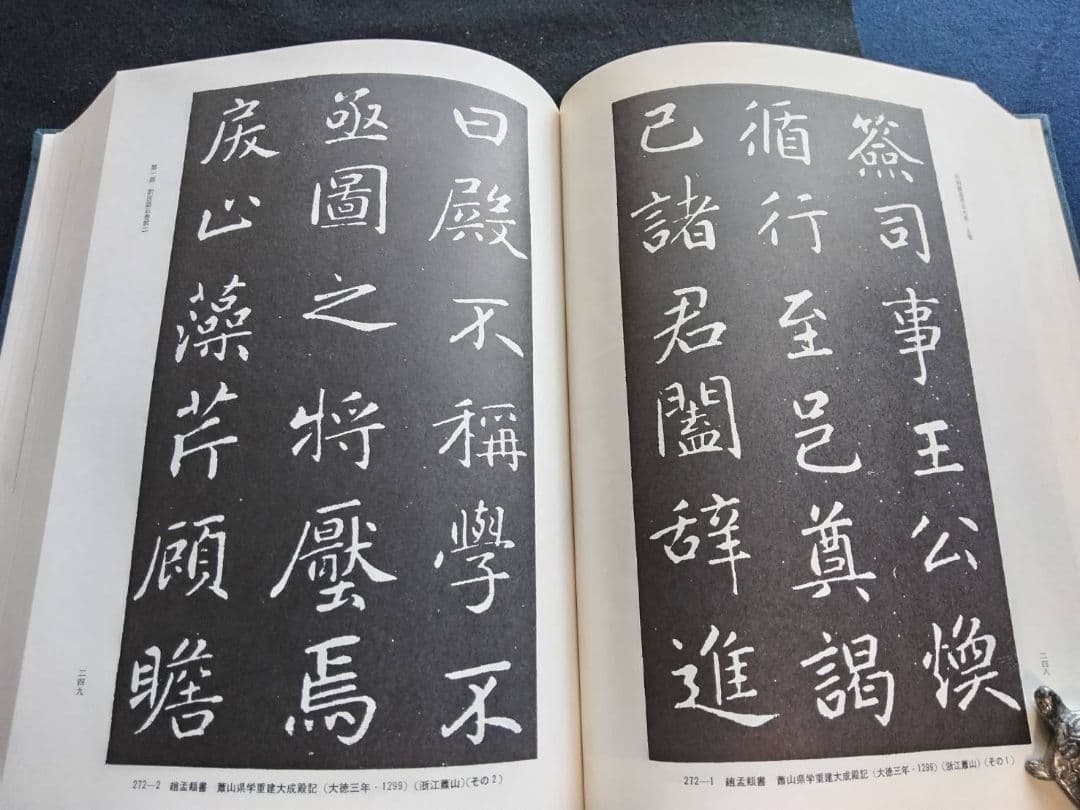 簽司事王公煥
循行至邑奠謁
已諸君闔辭進
272—1 趙孟頫書 蕭山県学重建大成殿記(大徳三年・1299)(浙江蕭山)(その1)
二四八
曰殿不稱學不
亟圖之將壓焉
戾止藻芹顧瞻
272—2 趙孟頫書 蕭山県学重建大成殿記(大徳三年・1299)(浙江蕭山)(その2)
二四九